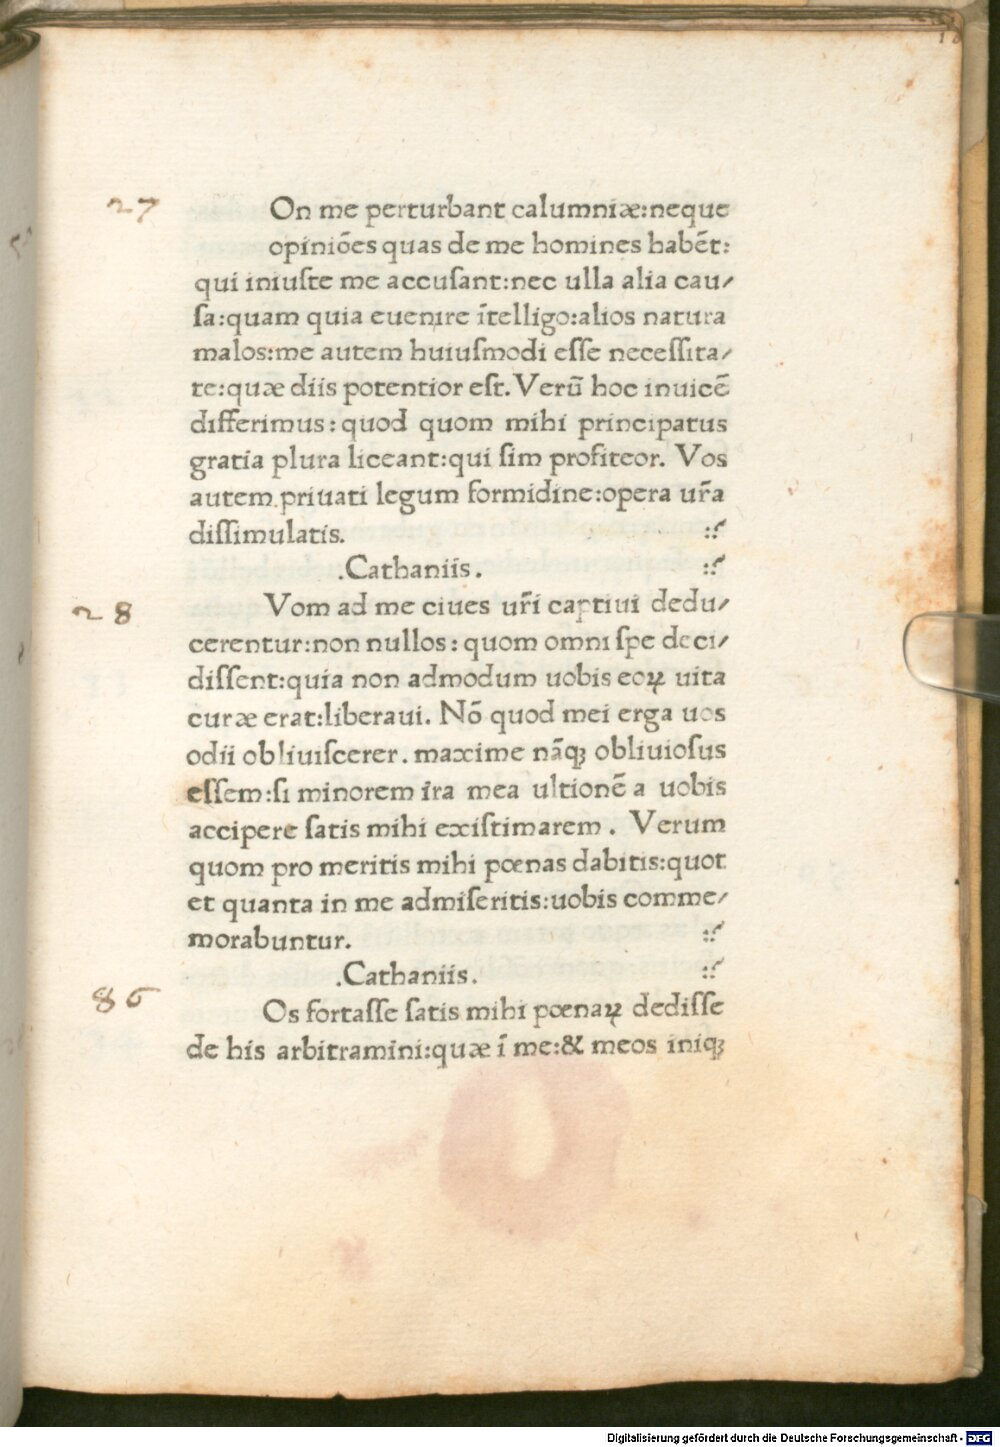 27
On me perturbant calumniæ:neque
opiniões quas de me homines habẽt:
qui iniuſte me accuſant:nec ulla alia cau/
ſa:quam quia euenire ĩtelligo:alios natura
malos:me autem huiuſmodi eſſe neceſſita/
te:quæ diis potentior eſt. Verũ hoc inuicẽ
differimus: quod quom mihi principatus
gratia plura liceant:qui ſim profiteor. Vos
autem priuati legum formidine:opera ur̃a
diſſimulatis.
.Cathaniis.
28
Vom ad me ciues ur̃i captiui dedu/
cerentur:non nullos: quom omni ſpe deci/
diſſent:quia non admodum uobis eoꝝ uita
curæ erat:liberaui. Nõ quod mei erga uos
odii obliuiſcerer. maxime nãqꝫ obliuioſus
eſſem:ſi minorem ĩra mea ultionẽ a uobis
accipere ſatis mihi exiſtimarem. Verum
quom pro meritis mihi pœnas dabitis:quot
et quanta in me admiſeritis:uobis comme/
morabuntur.
.Cathaniis.
86
Os fortaſſe ſatis mihi pœnaꝝ dediſſe
de his arbitramini:quæ ĩ me:& meos iniqꝫ
Digitalisierung gefördert durch die Deutsche Forschungsgemeinschaft - DFG